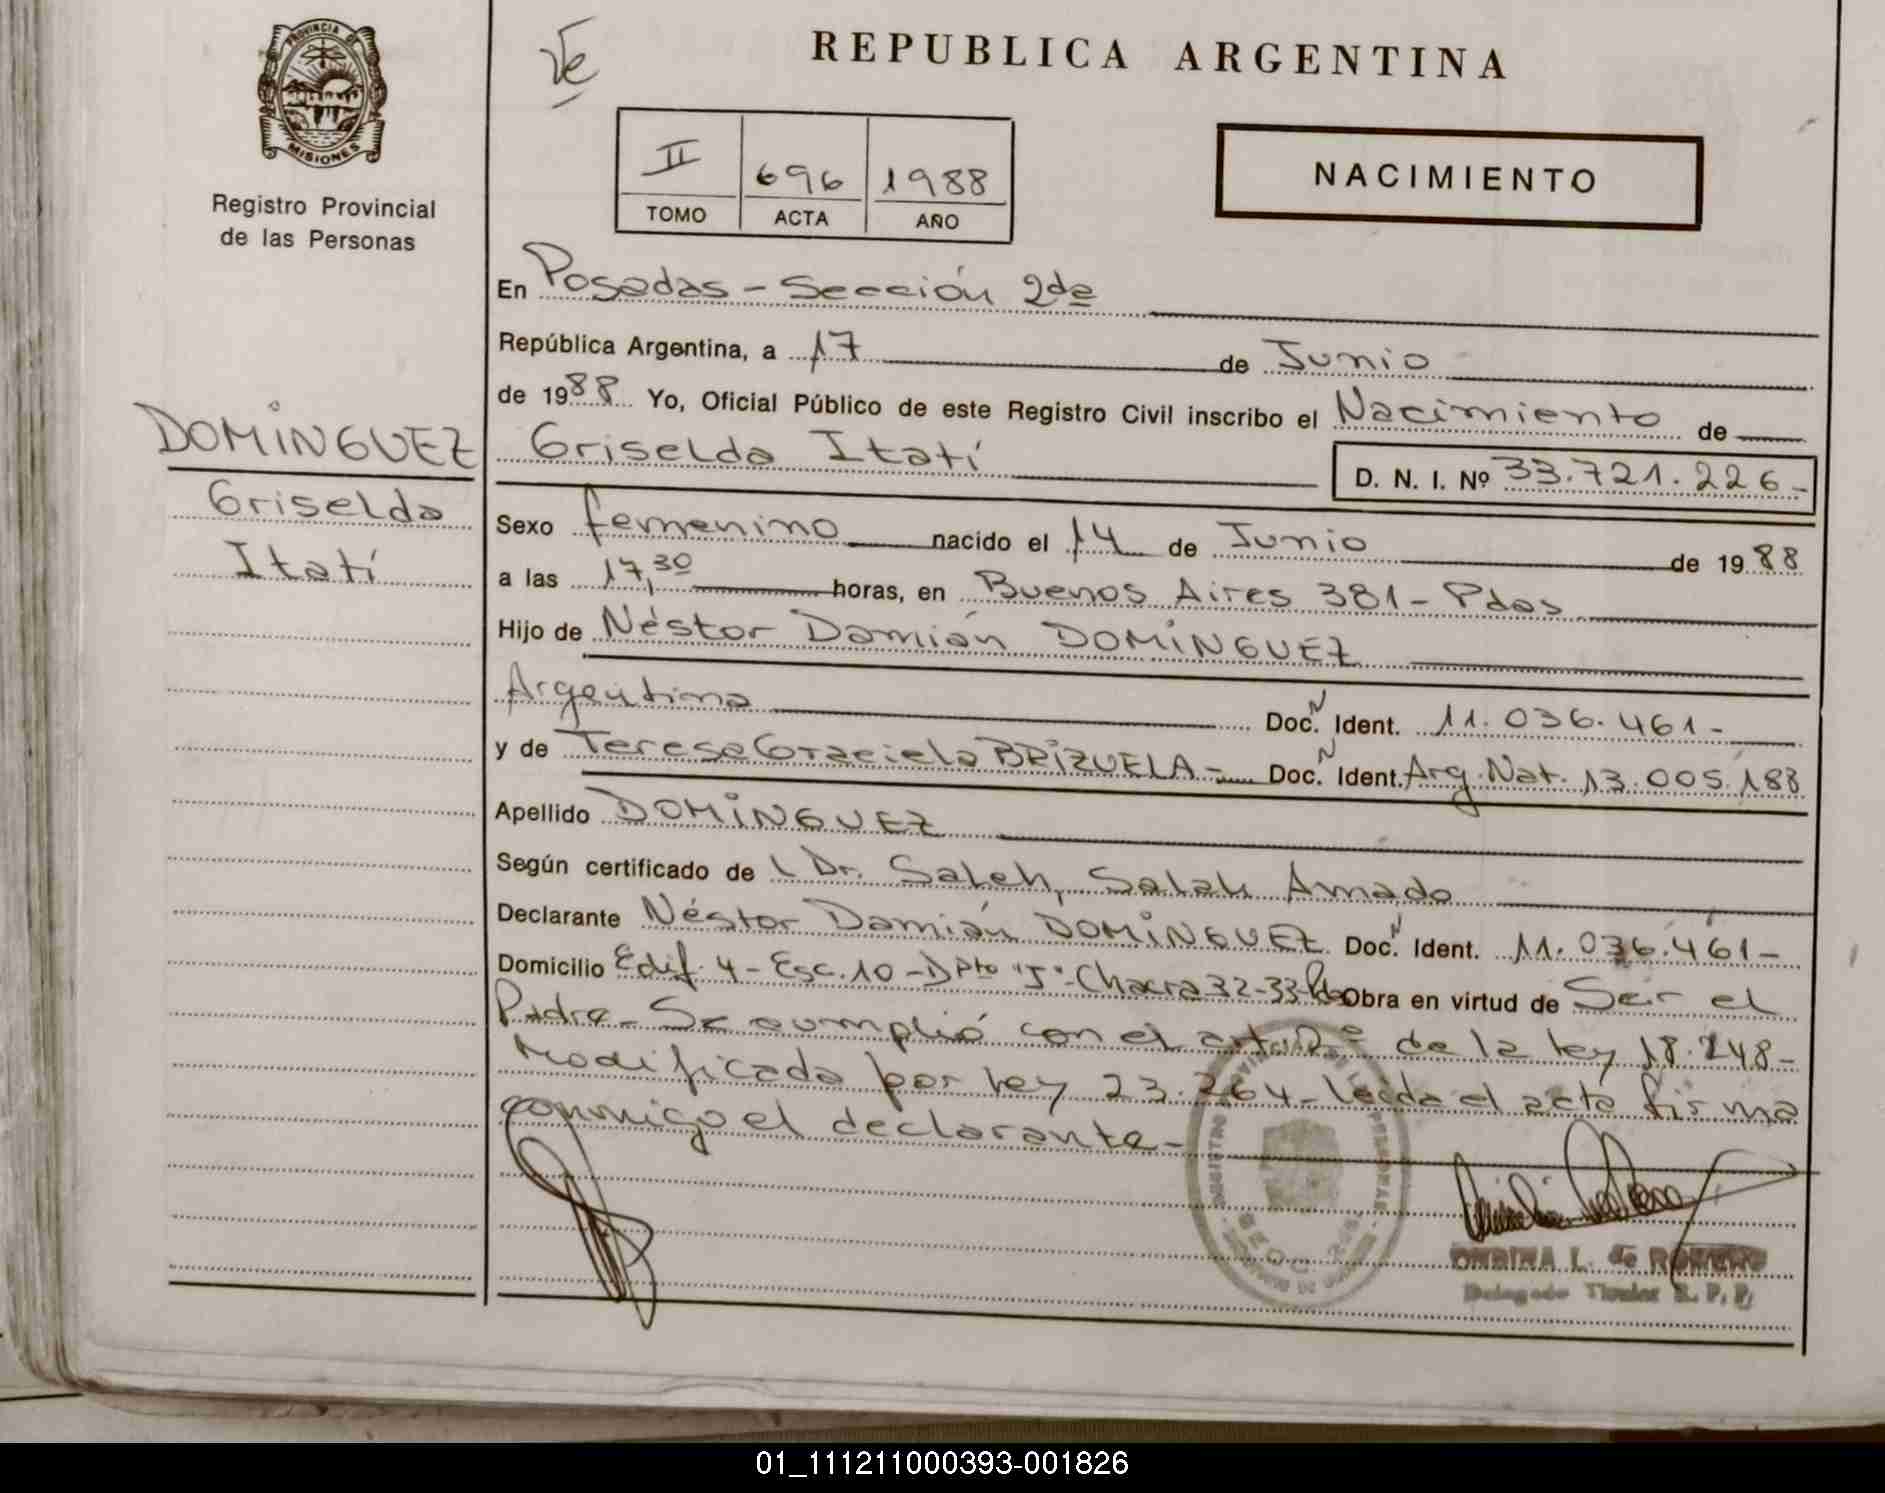 PROVINCIA DE
MISIONES
Registro Provincial
de las Personas
DOMINGUEZ
Griselda
Itatí
REPUBLICA ARGENTINA
II 696 1988
TOMO ACTA AÑO
NACIMIENTO
En Posadas - Sección 2da
República Argentina, a 17 de Junio
de 1988 Yo, Oficial Público de este Registro Civil inscribo el Nacimiento de
Griselda Itatí D. N. I. Nº 33.721.226-
Sexo femenino nacido el 14 de Junio de 1988
a las 17,30 horas, en Buenos Aires 381 - Pdas
Hijo de Néstor Damián DOMINGUEZ
Argentino Doc. N Ident. 11.036.461-
y de Teresa Graciela BRIZUELA - Doc. N Ident. Arg. Nat. 13.005.188
Apellido DOMINGUEZ
Según certificado de Dr. Saleh, Salah Amado
Declarante Néstor Damián DOMINGUEZ Doc. N Ident. 11.036.461-
Domicilio Edif. 4 - Esc. 10 - Dpto "J" - Chacra 32-33 Obra en virtud de Ser el
Padre - Se cumplió con el de la ley 18.248-
Modificada por ley 23.264 - leída el acta firma
conmigo el declarante-
L. de ROMERO
Delegado Titular R. P. P.
01_111211000393-001826